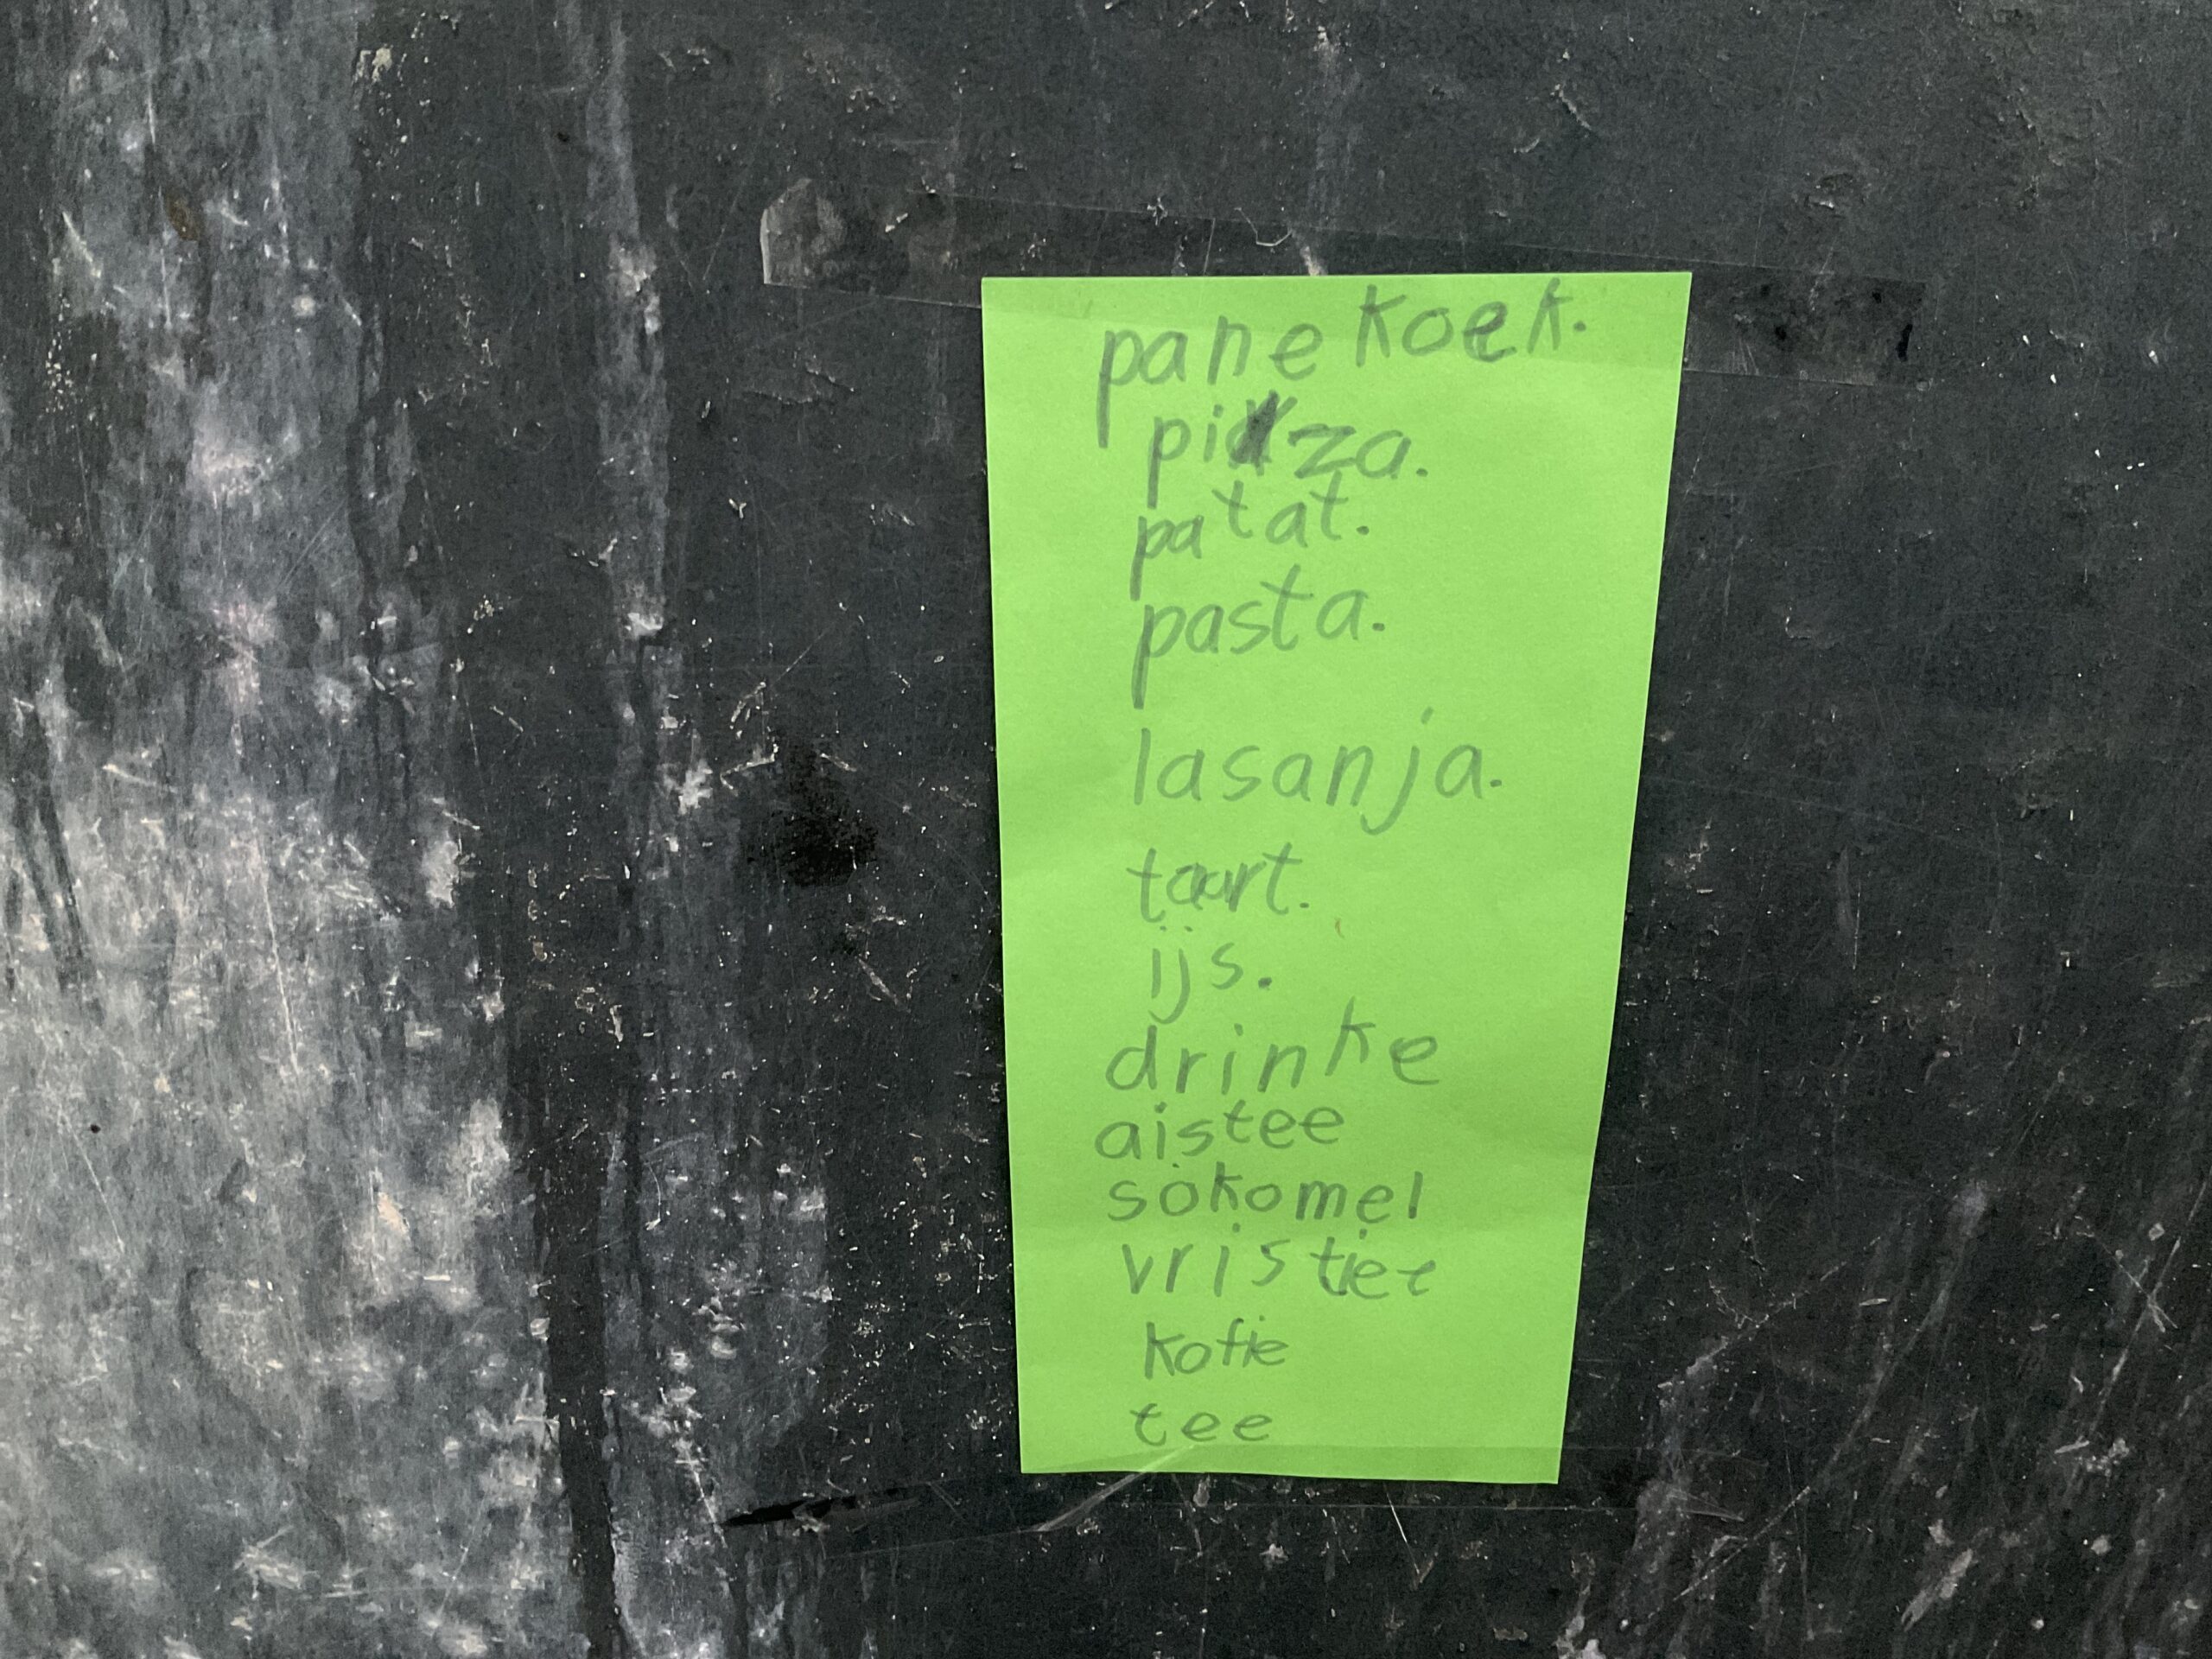 pane koek.
pidza.
patat.
pasta.
lasanja.
taart.
ijs.
drinke
aistee
sokomel
vristiee
kofie
tee